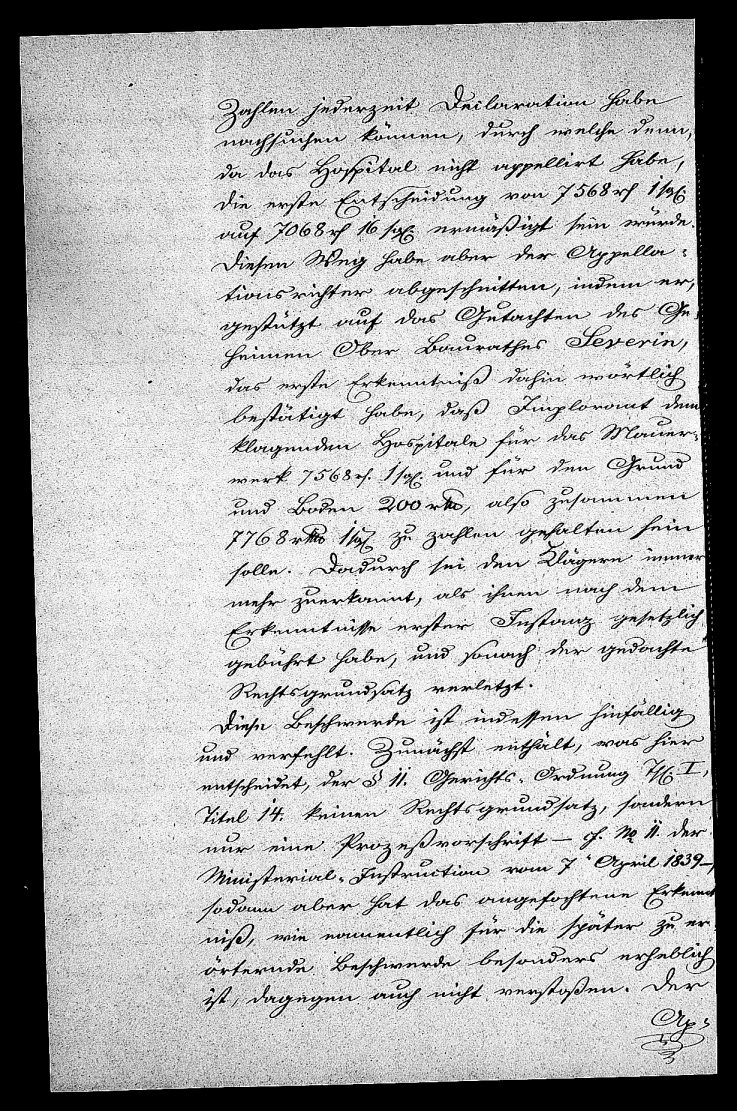 Zahlen jederzeit Declaration habe
nachsuchen können, durch welche denn,
da das Hospital nicht appellirt habe,
die erste Entscheidung von 7568 rf 1 sgl.
auf 7068 rf 16 sgl. ermäßigt sein würde.
Diesen Weg habe aber der Appella-
tionsrichter abgeschnitten, indem er,
gestützt auf das Gutachten des Ge-
heimen Ober Baurathes Severin,
das erste Erkenntniß dahin wörtlich
bestätigt habe, daß Implorant dem
klagenden Hospitale für das Mauer-
werk 7568 rf. 1 sgl. und für den Grund
und Boden 200 rtls, also zusammen
7768 rtls 1 sgl zu zahlen gehalten sein
solle. Dadurch sei den Klägern immer
mehr zuerkannt, als ihnen nach dem
Erkenntnisse erster Instanz gesetzlich
gebührt habe, und sonach der gedachte
Rechtsgrundsatz verletzt.
Diese Beschwerde ist indessen hinfällig
und verfehlt. Zunächst enthält, was hier
entscheidet, der § 11. Gerichts-Ordnung Th. I,
Titel 14. keinen Rechtsgrundsatz, sondern
nur eine Prozeßvorschrift – cf. No 11. der
Ministerial-Instruction vom 7. April 1839 –,
sodann aber hat das angefochtene Erkennt
niß, wie namentlich für die später zu er-
örternde Beschwerde besonders erheblich
ist, dagegen auch nicht verstoßen. Der
Ap-